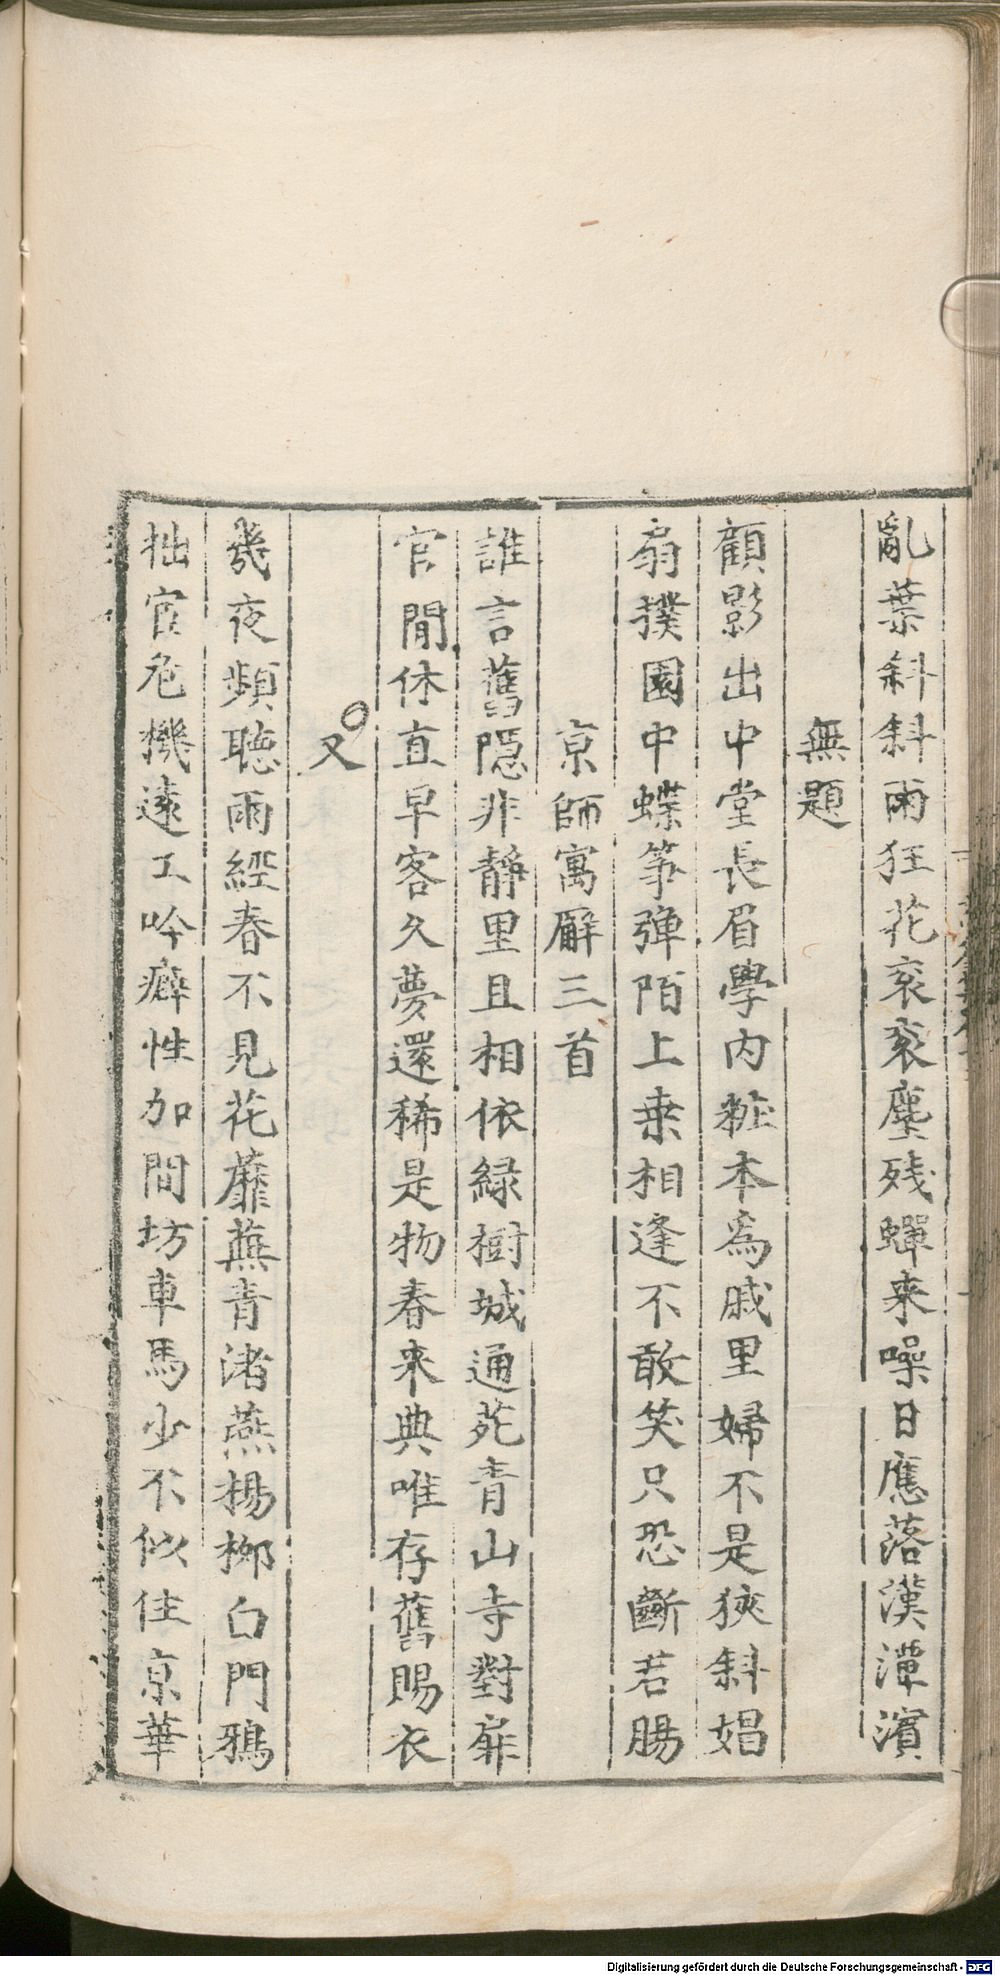 亂葉斜斜雨狂花袞袞塵残蟬来噪日應落漢潭濱
無題
顧影出中堂長眉學内粧本為戚里婦不是狹斜娼
扇撲園中蝶筝弾陌上桒相逢不敢笑只恐斷君腸
京師寓廨三首
誰言舊隠非静里且相依緑樹城通苑青山寺對扉
官閒休直早客久夢還稀是物春来典唯存舊賜衣
又
幾夜頻聴雨經春不見花蘼蕪青渚燕楊栁白門鴉
拙宦危機逺工吟癖性加間坊車馬少不似住京華
Digitalisierung gefördert durch die Deutsche Forschungsgemeinschaft - DFG